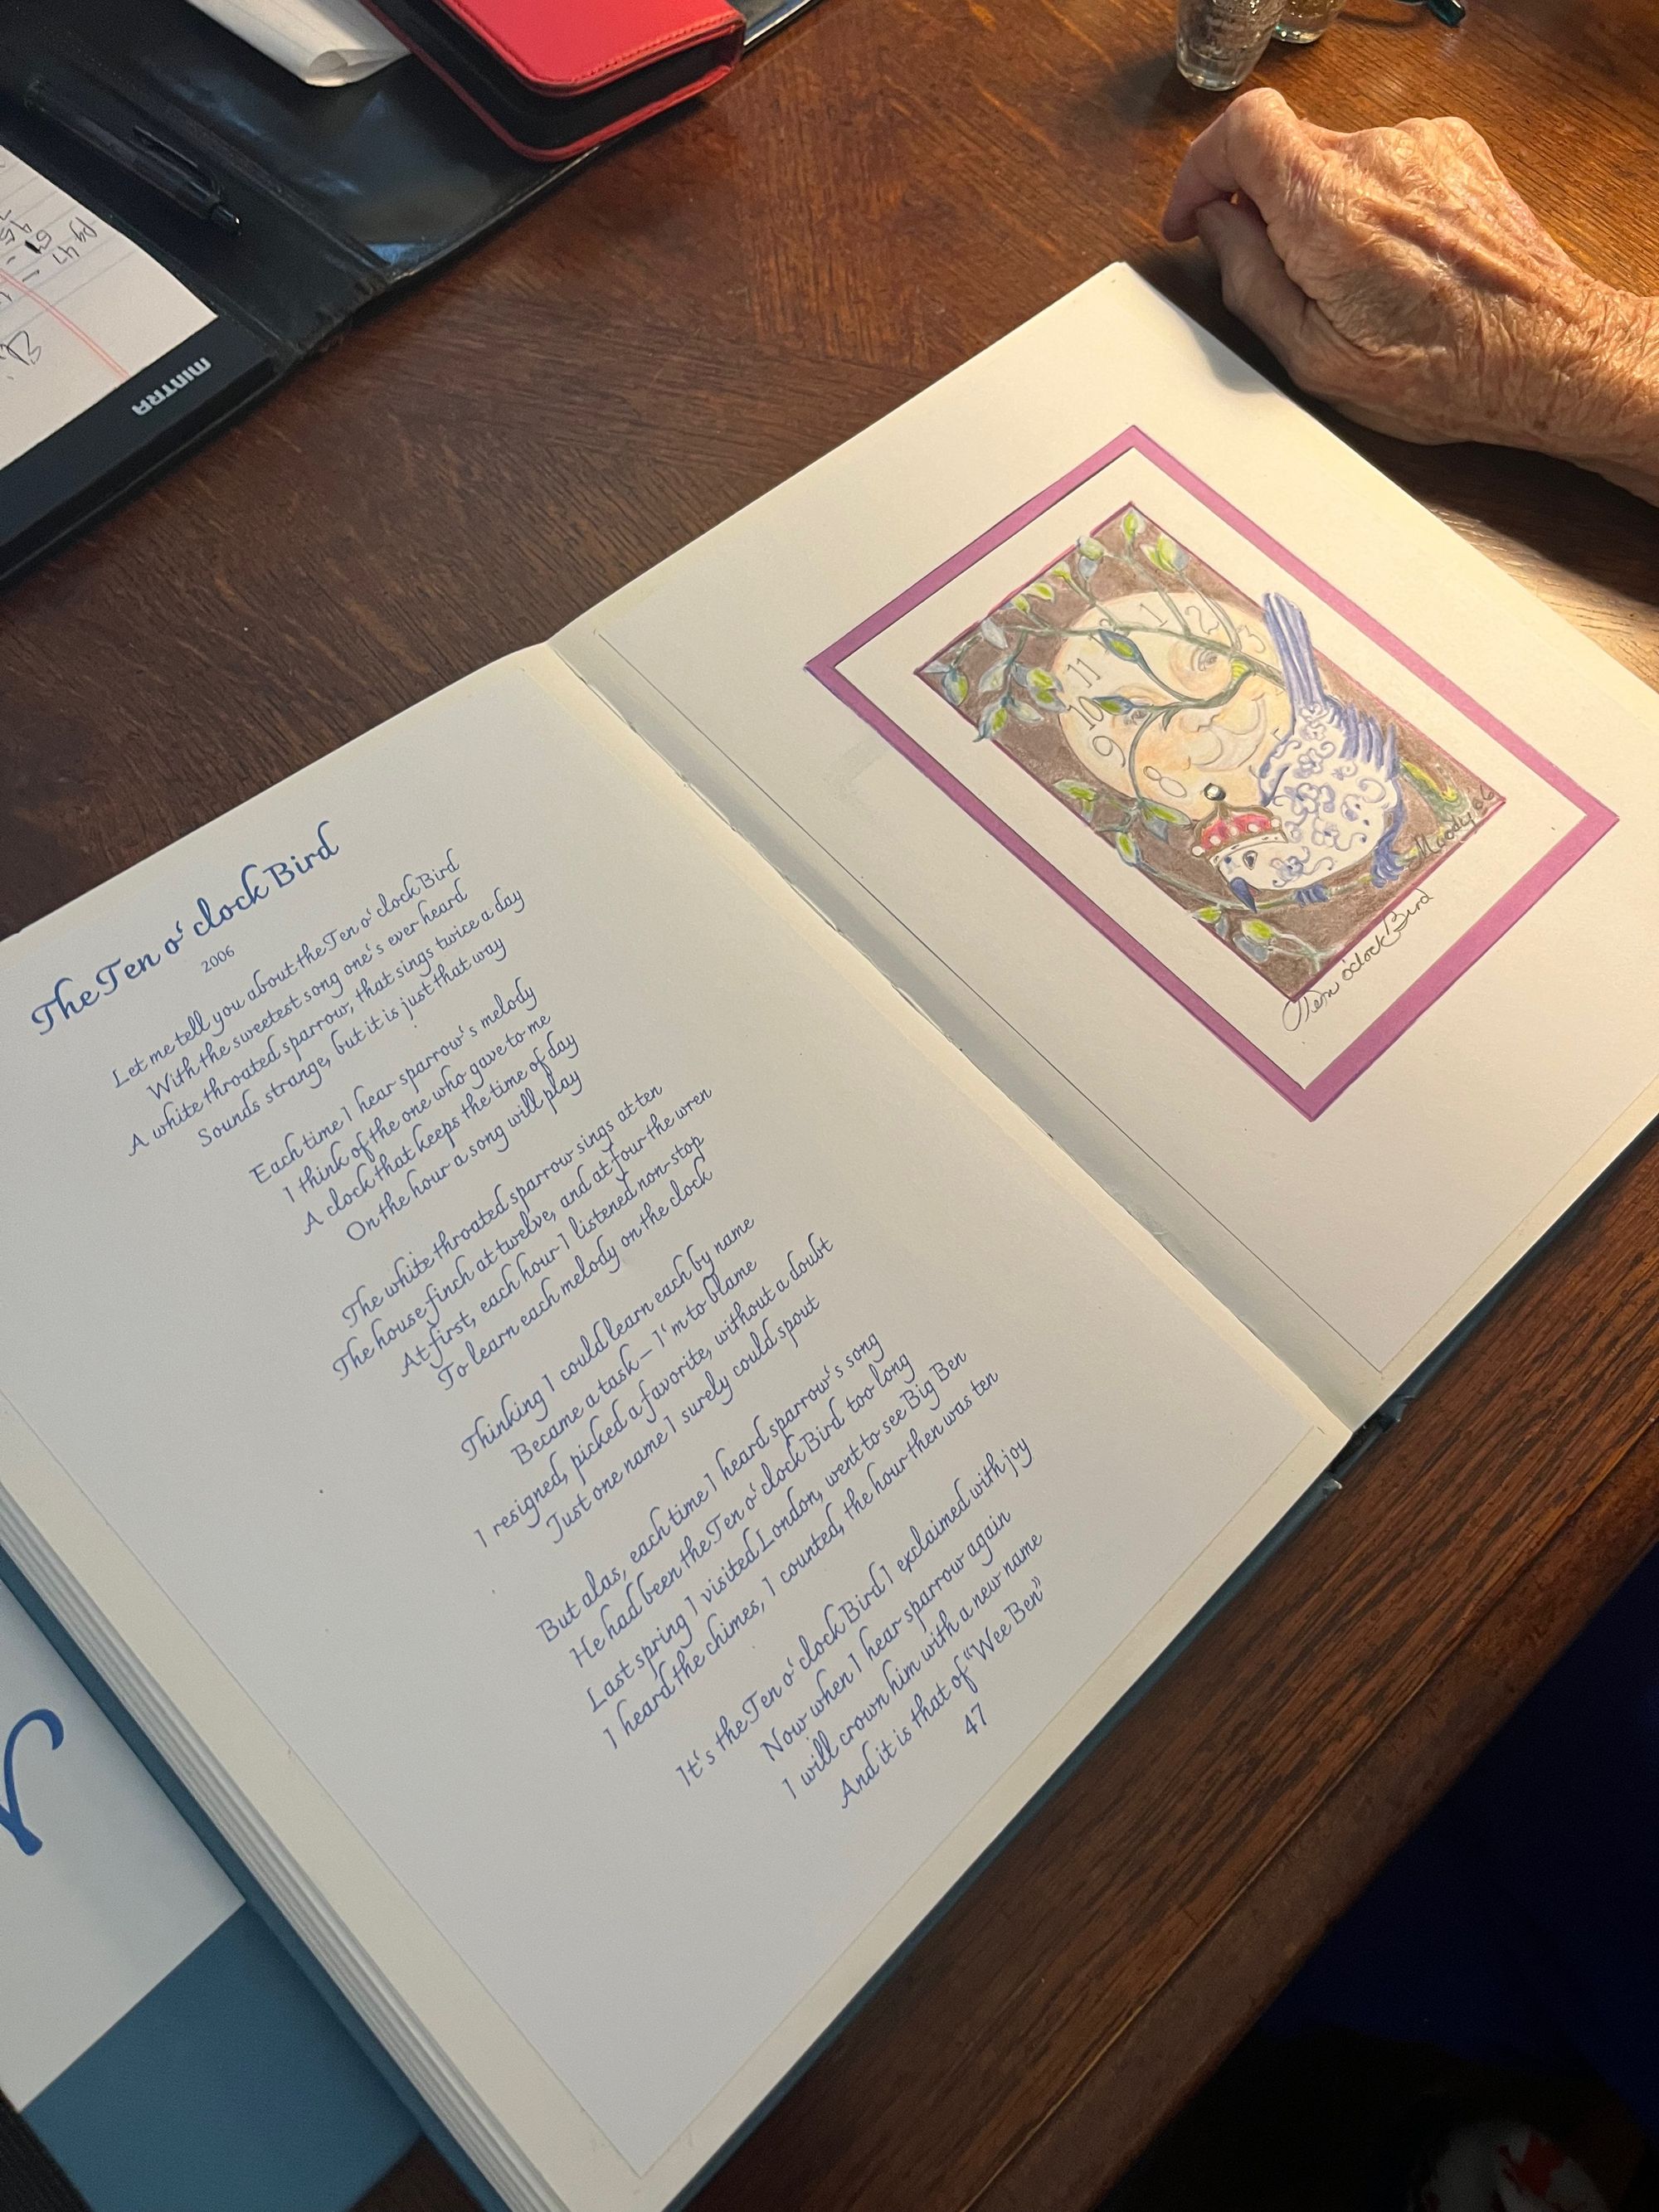 The Ten o'clock Bird
2006
Let me tell you about the Ten o'clock Bird
With the sweetest song one's ever heard
A white throated sparrow, that sings twice a day
Sounds strange, but it is just that way
Each time I hear sparrow's melody
I think of the one who gave to me
A clock that keeps the time of day
On the hour a song will play
The white throated sparrow sings at ten
The house finch at twelve, and at four the wren
At first, each hour I listened non-stop
To learn each melody on the clock
Thinking I could learn each by name
Became a task – I'm to blame
I resigned, picked a favorite, without a doubt
Just one name I surely could spout
But alas, each time I heard sparrow's song
He had been the Ten o'clock Bird too long
Last spring I visited London, went to see Big Ben
I heard the chimes, I counted, the hour then was ten
It's the Ten o'clock Bird I exclaimed with joy
Now when I hear sparrow again
I will crown him with a new name
And it is that of "Wee Ben"
47
1
2
3
11
10
9
8
5
Moody 06
Ten o'clock Bird
MINTRA
pg 47